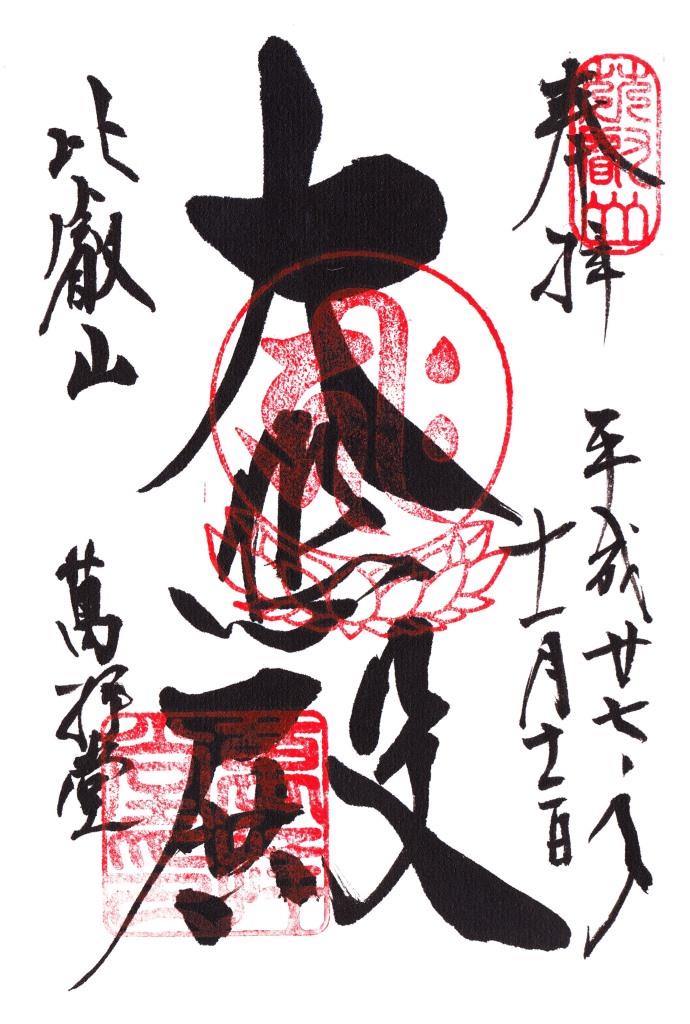 奉拝
平成廿七年
十一月十二日
大悲殿
比叡山
萬拝堂